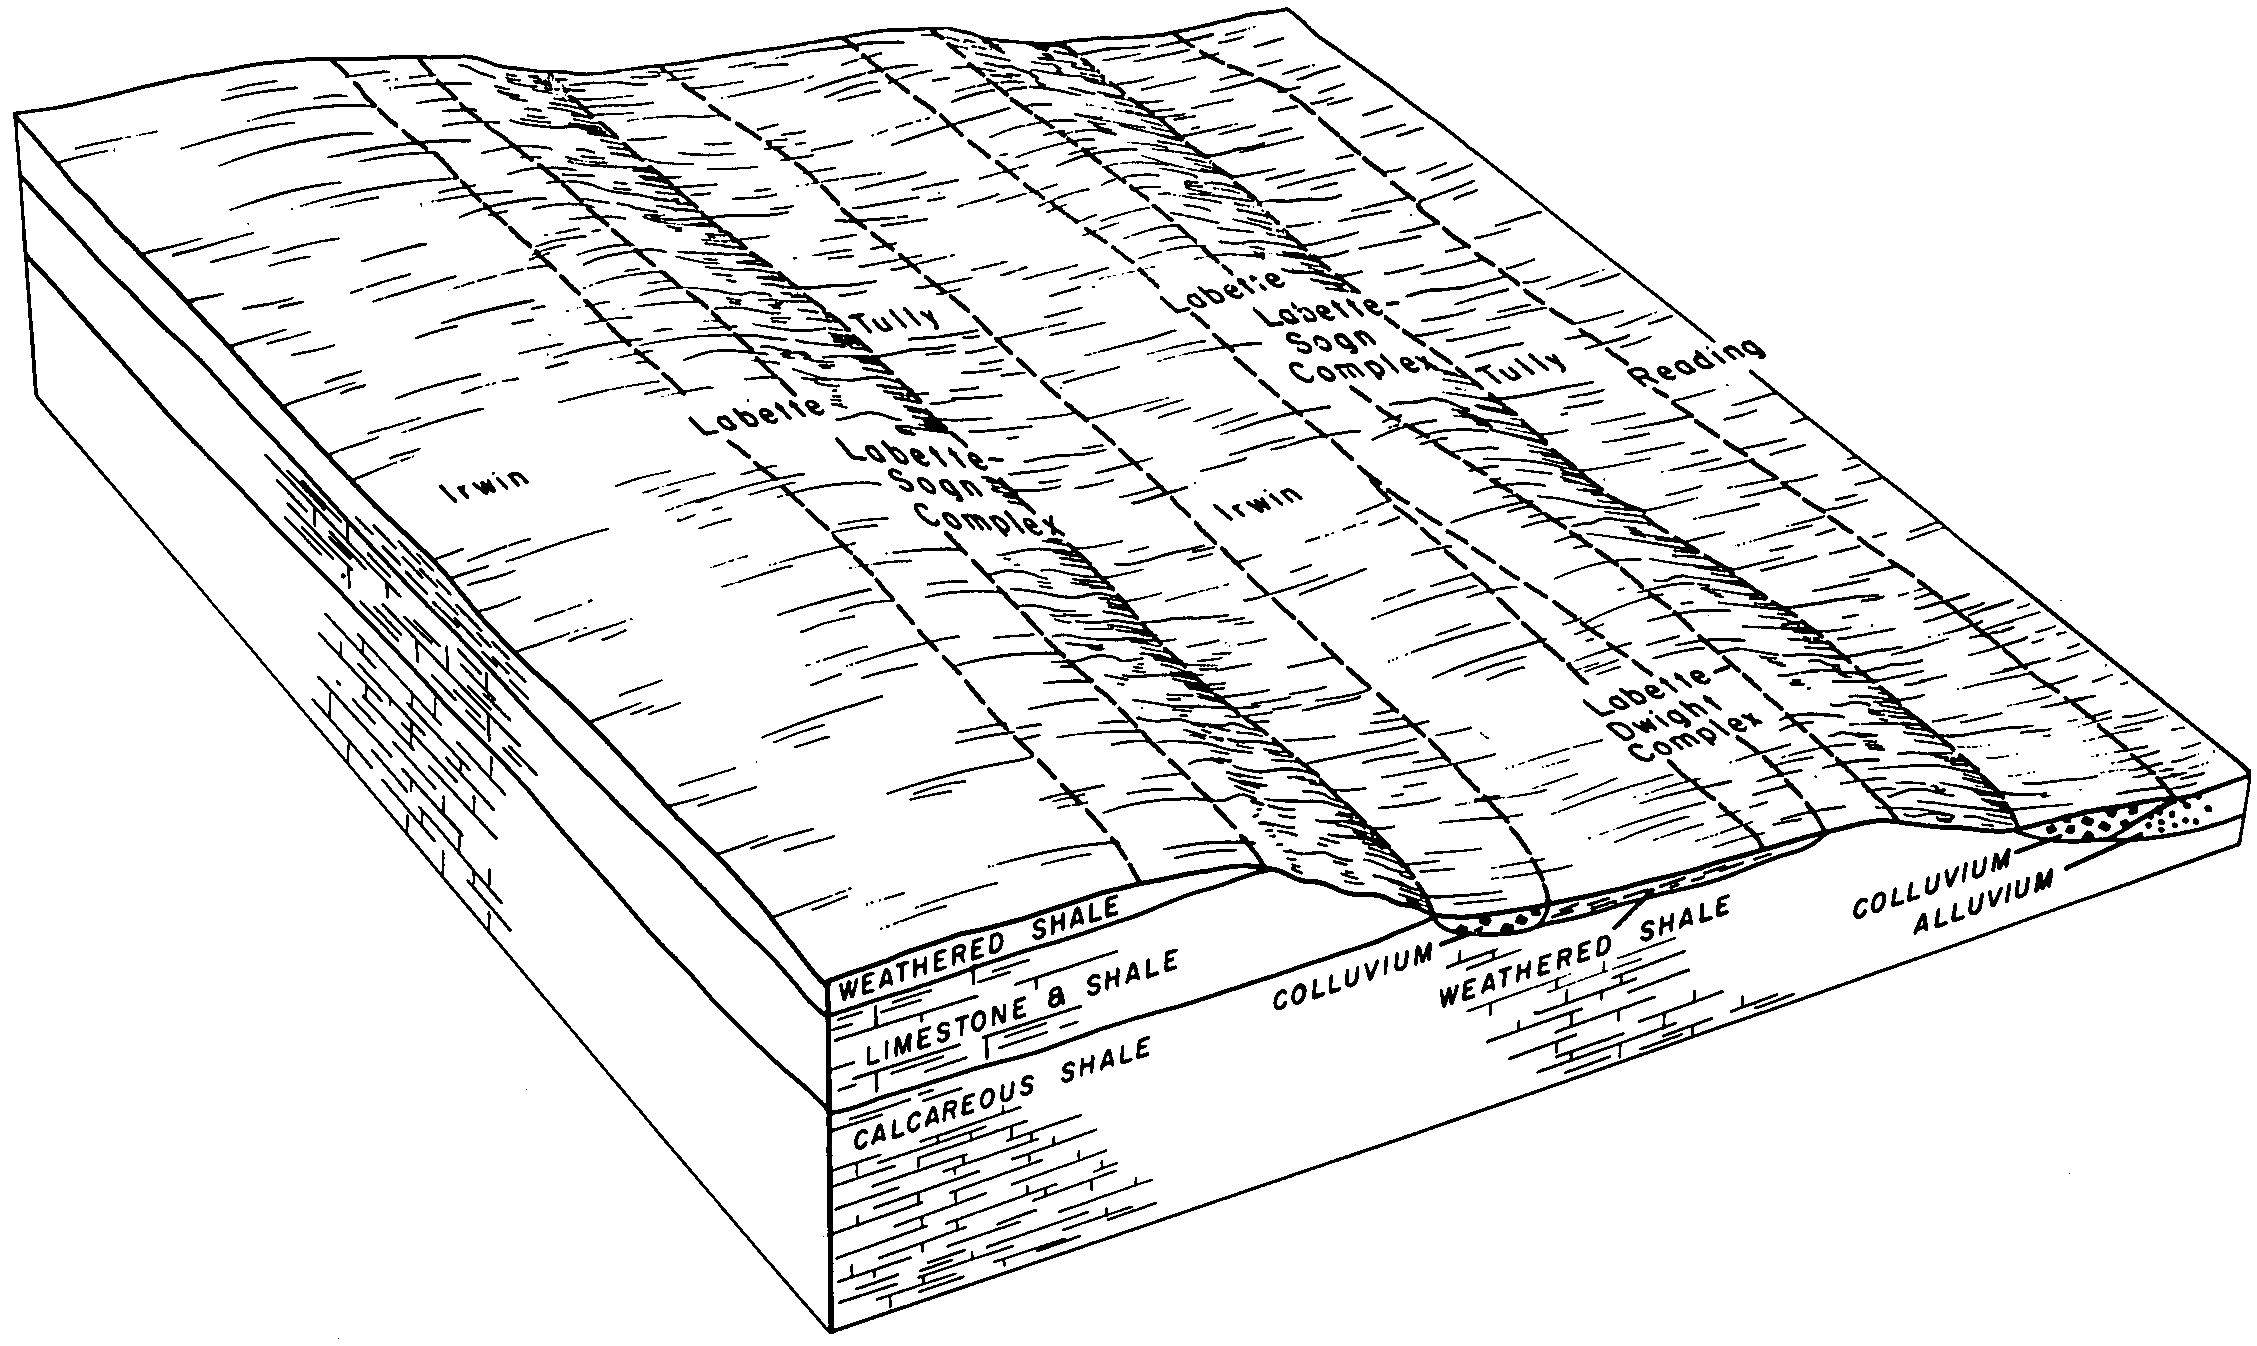 Labette
Labette-
Sogn
Complex
Tully
Tully
Reading
Labette
Labette-
Sogn
Complex
Irwin
Irwin
Labette-
Dwight
Complex
WEATHERED SHALE
LIMESTONE & SHALE
CALCAREOUS SHALE
COLLUVIUM
WEATHERED SHALE
COLLUVIUM
ALLUVIUM